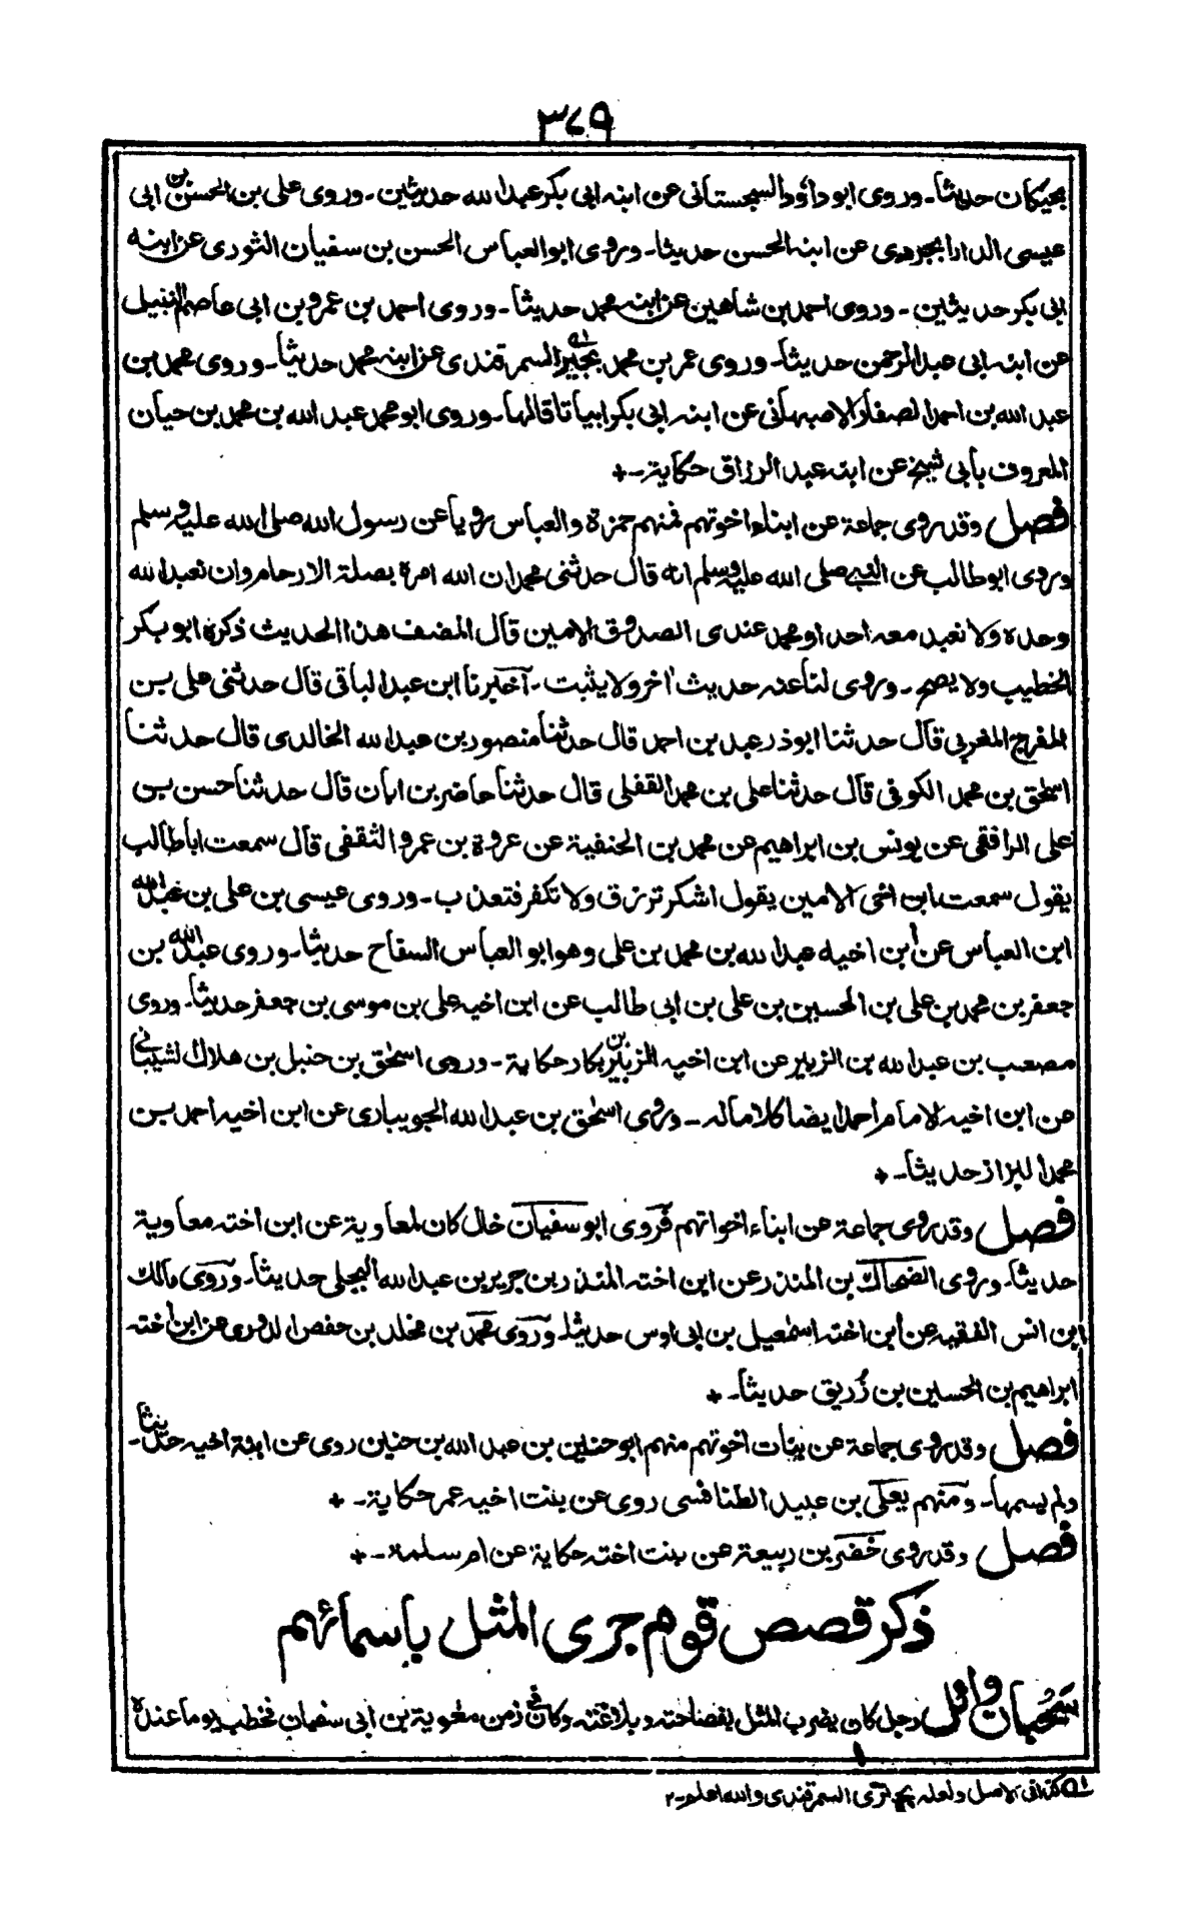 ٣٧٩
بحيكان حديثا۔ وروى ابو داؤد السجستانى عن ابنه ابى بكر عبد الله حديثين۔ وروى على بن الحسن بن ابى
عيسى الدارابجردى عن ابنه الحسن حديثا۔ وروى ابو العباس الحسن بن سفيان الثورى عن ابنه
ابى بكر حديثين۔ وروى احمد بن شاهين عن ابنه محمد حديثا۔ وروى احمد بن عمرو بن ابى عاصم النبيل
عن ابنه ابى عبد الرحمن حديثا۔ وروى عمر بن محمد بجير السمرقندى عن ابنه محمد حديثا۔ وروى محمد بن
عبد الله بن احمد الصفار الاصبهانى عن ابنه ابى بكر ابياتا قالها۔ وروى ابو محمد عبد الله بن محمد بن حيان
المعروف بابى شيخ عن ابنه عبد الرزاق حكاية۔+
فصل وقد روى جماعة عن ابناء اخوتهم فمنهم حمزة والعباس رويا عن رسول الله صلى الله عليه وسلم
وروى ابو طالب عن النبى صلى الله عليه وسلم انه قال حدثنى محمد ان الله امره بصلة الارحام وان نعبد الله
وحده ولا نعبد معه احدا ومحمد عندى الصدوق الامين قال المصنف هذا الحديث ذكره ابو بكر
الخطيب ولا يصح۔ وروى لنا عنه حديث اخر ولا يثبت۔ اخبرنا ابن عبد الباقى قال حدثنى على بن
المفرج المغربى قال حدثنا ابو ذر عبد بن احمد قال حدثنا منصور بن عبد الله الخالدى قال حدثنا
اسحق بن محمد الكوفى قال حدثنا على بن محمد القفلى قال حدثنا حاضر بن ابان قال حدثنا حسن بن
على الرافقى عن يونس بن ابراهيم عن محمد بن الحنفية عن عروة بن عمرو الثقفى قال سمعت ابا طالب
يقول سمعت ابن اخى الامين يقول اشكر ترزق ولا تكفر فتعذب۔ وروى عيسى بن على بن عبد الله
ابن العباس عن ابن اخيه عبد الله بن محمد بن على وهو ابو العباس السفاح حديثا۔ وروى عبد الله بن
جعفر بن محمد بن على بن الحسين بن على بن ابى طالب عن ابن اخيه على بن موسى بن جعفر حديثا۔ وروى
مصعب بن عبد الله بن الزبير عن ابن اخيه الزبير بن بكار حكاية۔ وروى اسحق بن حنبل بن هلال الشيبانى
عن ابن اخيه الامام احمد ايضا كلاما له۔ وروى اسحق بن عبد الله الجويبارى عن ابن اخيه احمد بن
محمد البزاز حديثا۔+
فصل وقد روى جماعة عن ابناء اخواتهم فروى ابو سفيان خال كان لمعاوية عن ابن اخته معاوية
حديثا۔ وروى الضحاك بن المنذر عن ابن اخته المنذر بن جرير بن عبد الله البجلى حديثا۔ وروى مالك
ابن انس الفقيه عن ابن اخته اسمعيل بن ابى اوس حديثا۔ وروى محمد بن مخلد بن حفص الدورى عن ابن اخته
ابراهيم بن الحسين بن زريق حديثا۔+
فصل وقد روى جماعة عن بنات اخوتهم منهم ابو حنين بن عبد الله بن حنين روى عن ابنة اخيه حديثا۔
ولم يسمها۔ ومنهم يعلى بن عبيد الطنافسى روى عن بنت اخيه عمر حكاية۔+
فصل وقد روى خضر بن ربيعة عن بنت اخته حكاية عن ام سلمة۔+
ذكر قصص قوم جرى المثل باسمائهم
سحبان وائل رجل كان يضرب المثل بفصاحته وبلاغته وكان فى زمن معوية بن ابى سفيان فخطب يوما عنده
كذا فى الاصل ولعله السمرقندى والله اعلم۔